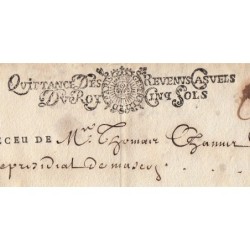 QUITTANCE DES REVENUS CASUELS
DU ROY CINQ SOLS
ECEU DE Mre Thomas
presidial de mascon